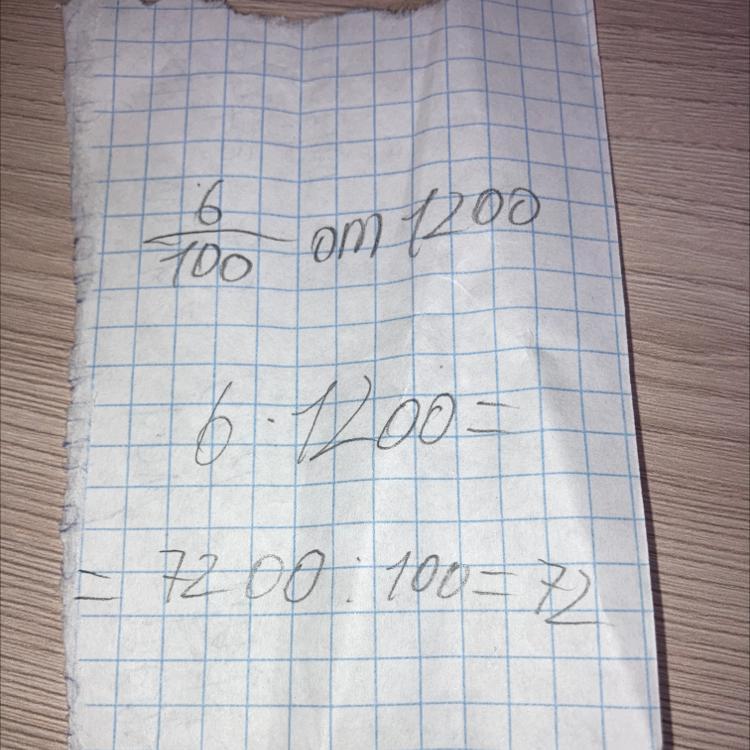 6/100 от 1200
6 · 1200 =
= 7200 : 100 = 72